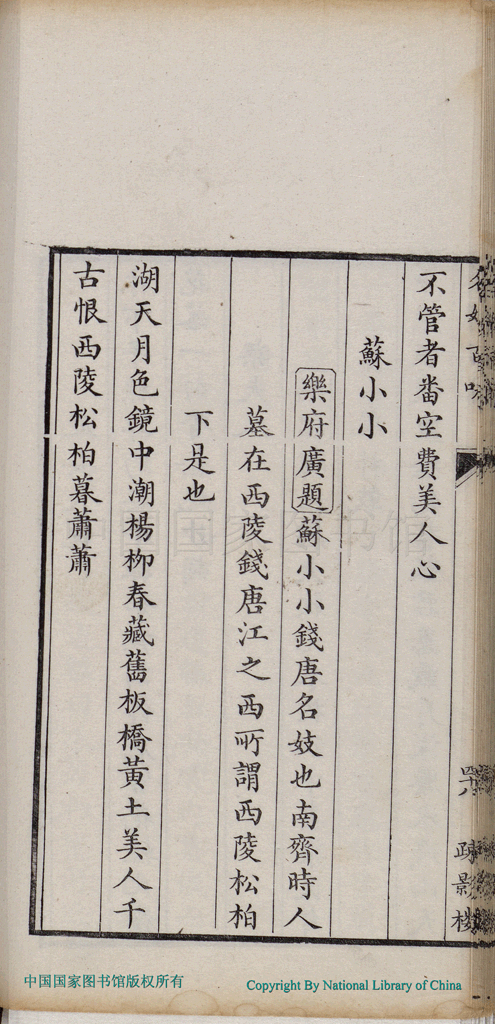 不管者番空費美人心
蘇小小
樂府廣題蘇小小錢唐名妓也南齊時人
墓在西陵錢唐江之西所謂西陵松柏
下是也
湖天月色鏡中潮楊柳春藏舊板橋黃土美人千
古恨西陵松柏暮蕭蕭
中国国家图书馆版权所有
Copyright By National Library of China